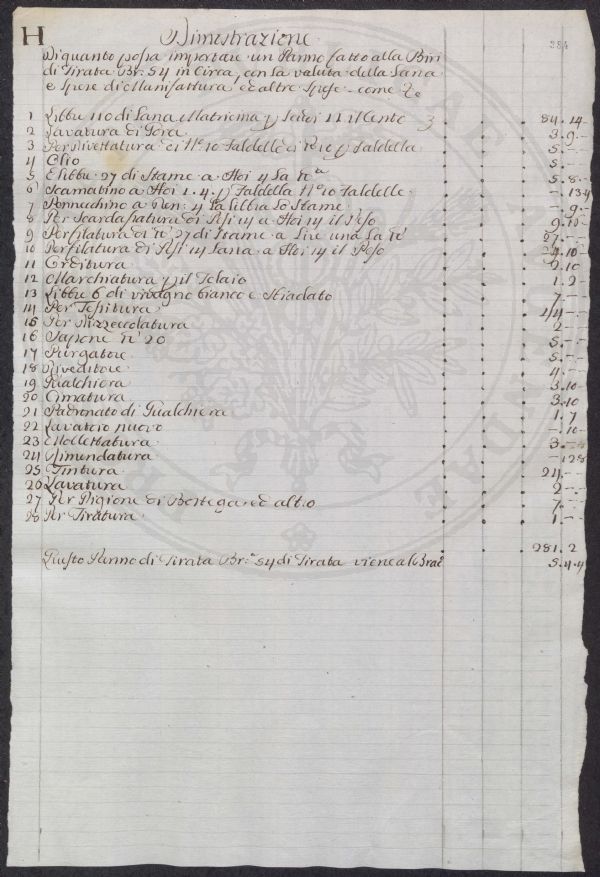 H Dimostrazione 384
Di quanto possa importare un Panno fatto alla
di Tirata Br: 54 in Circa, con la valuta della Lana
e Spese di Manifattura ed altre Spese come
1 Libbre 110 di Lana Matricina 84. 14
2 Lavatura di Fora 3. 9.
3 Per Divettatura di N.° 10 Faldelle Faldella 5. –
4 Olio 5. –
5 Libbre 27 di Stame a 5. 8. –
6 Scamatino a 1. 4. Faldella N.° 10 Faldelle – 13 4
7 Pennechino a Den: 4 la Libbra lo Stame – 9. –
8 Per Scardassatura di Pesi 14 a 14 il Peso 9. 10
9 Per filatura di 27 di Stame a Lire una la 27 –
10 Per filatura di Pesi 14 Lana a 14 il Peso 24. 10
11 Orditura 2. 10
12 Marchiatura il Telaio 1. 2
13 Libbre 6 di vivagno bianco e Stiadato 7. –
14 Per Tessitura 44. –
15 Per Dizzeccolatura 2 –
16 Sapone 20 5. –
17 Purgatore 5. –
18 Riveditore 4. –
19 Gualchiera 3. 10
20 Cimatura 3. 10
21 Padronato di Gualchiera 1. 7
22 Lavatoio nuovo – 10 –
23 Mollettatura 3. –
24 Rimendatura – 12 8
25 Tintura 24. –
26 Lavatura 2 –
27 Per Pigione di Bottega ed altro 7. –
28 Per Tiratura 1. –
281. 2
Questo Panno di Tirata Br: 54 di Tirata viene al Brac 5. 4. 4